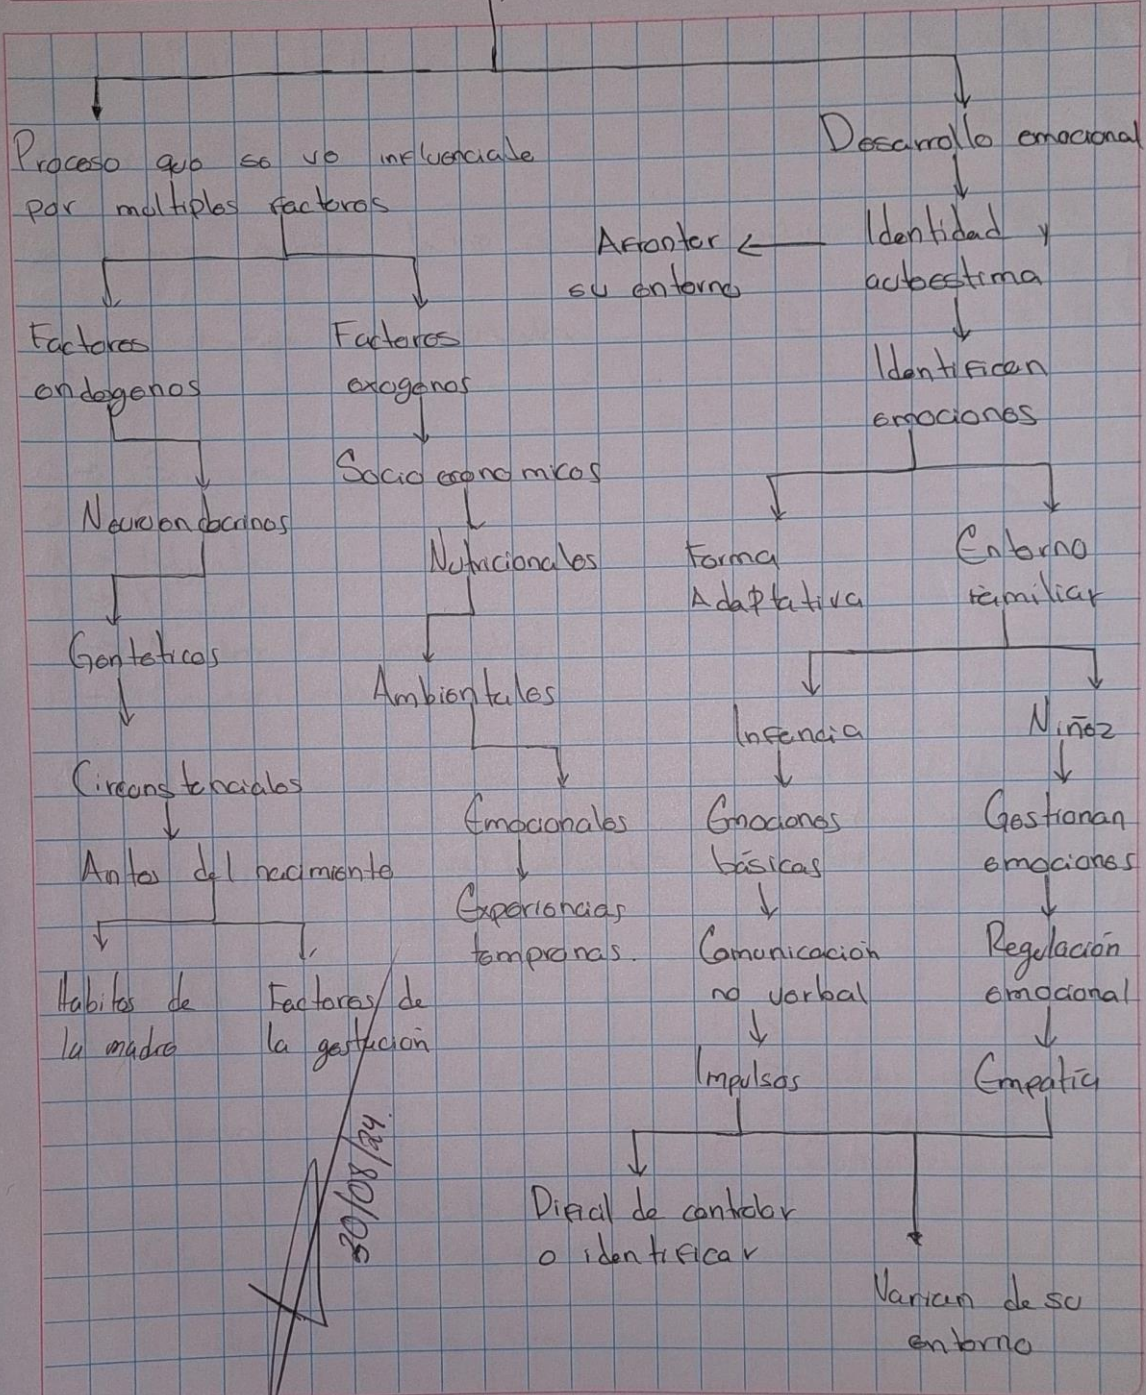 Proceso que se ve influenciale
por multiples factores
Factores
endogenos
Neuroendocrinos
Genteticos
Circunstenciales
Antes del nacimiento
Habitos de
la madre
Factores de
la gestacion
Factores
exogenos
Socio economicos
Nutricionales
Ambientales
Emocionales
Experiencias
tempranas.
Desarrollo emocional
Identidad y
autoestima
Afrontar
su entorno
Identifican
emociones
Forma
Adaptativa
Entorno
familiar
Infancia
Emociones
básicas
Comunicacion
no verbal
Impulsos
Niñez
Gestionan
emociones
Regulación
emocional
Empatia
Dificil de controlar
o identificar
Varian de su
entorno
30/08/24.